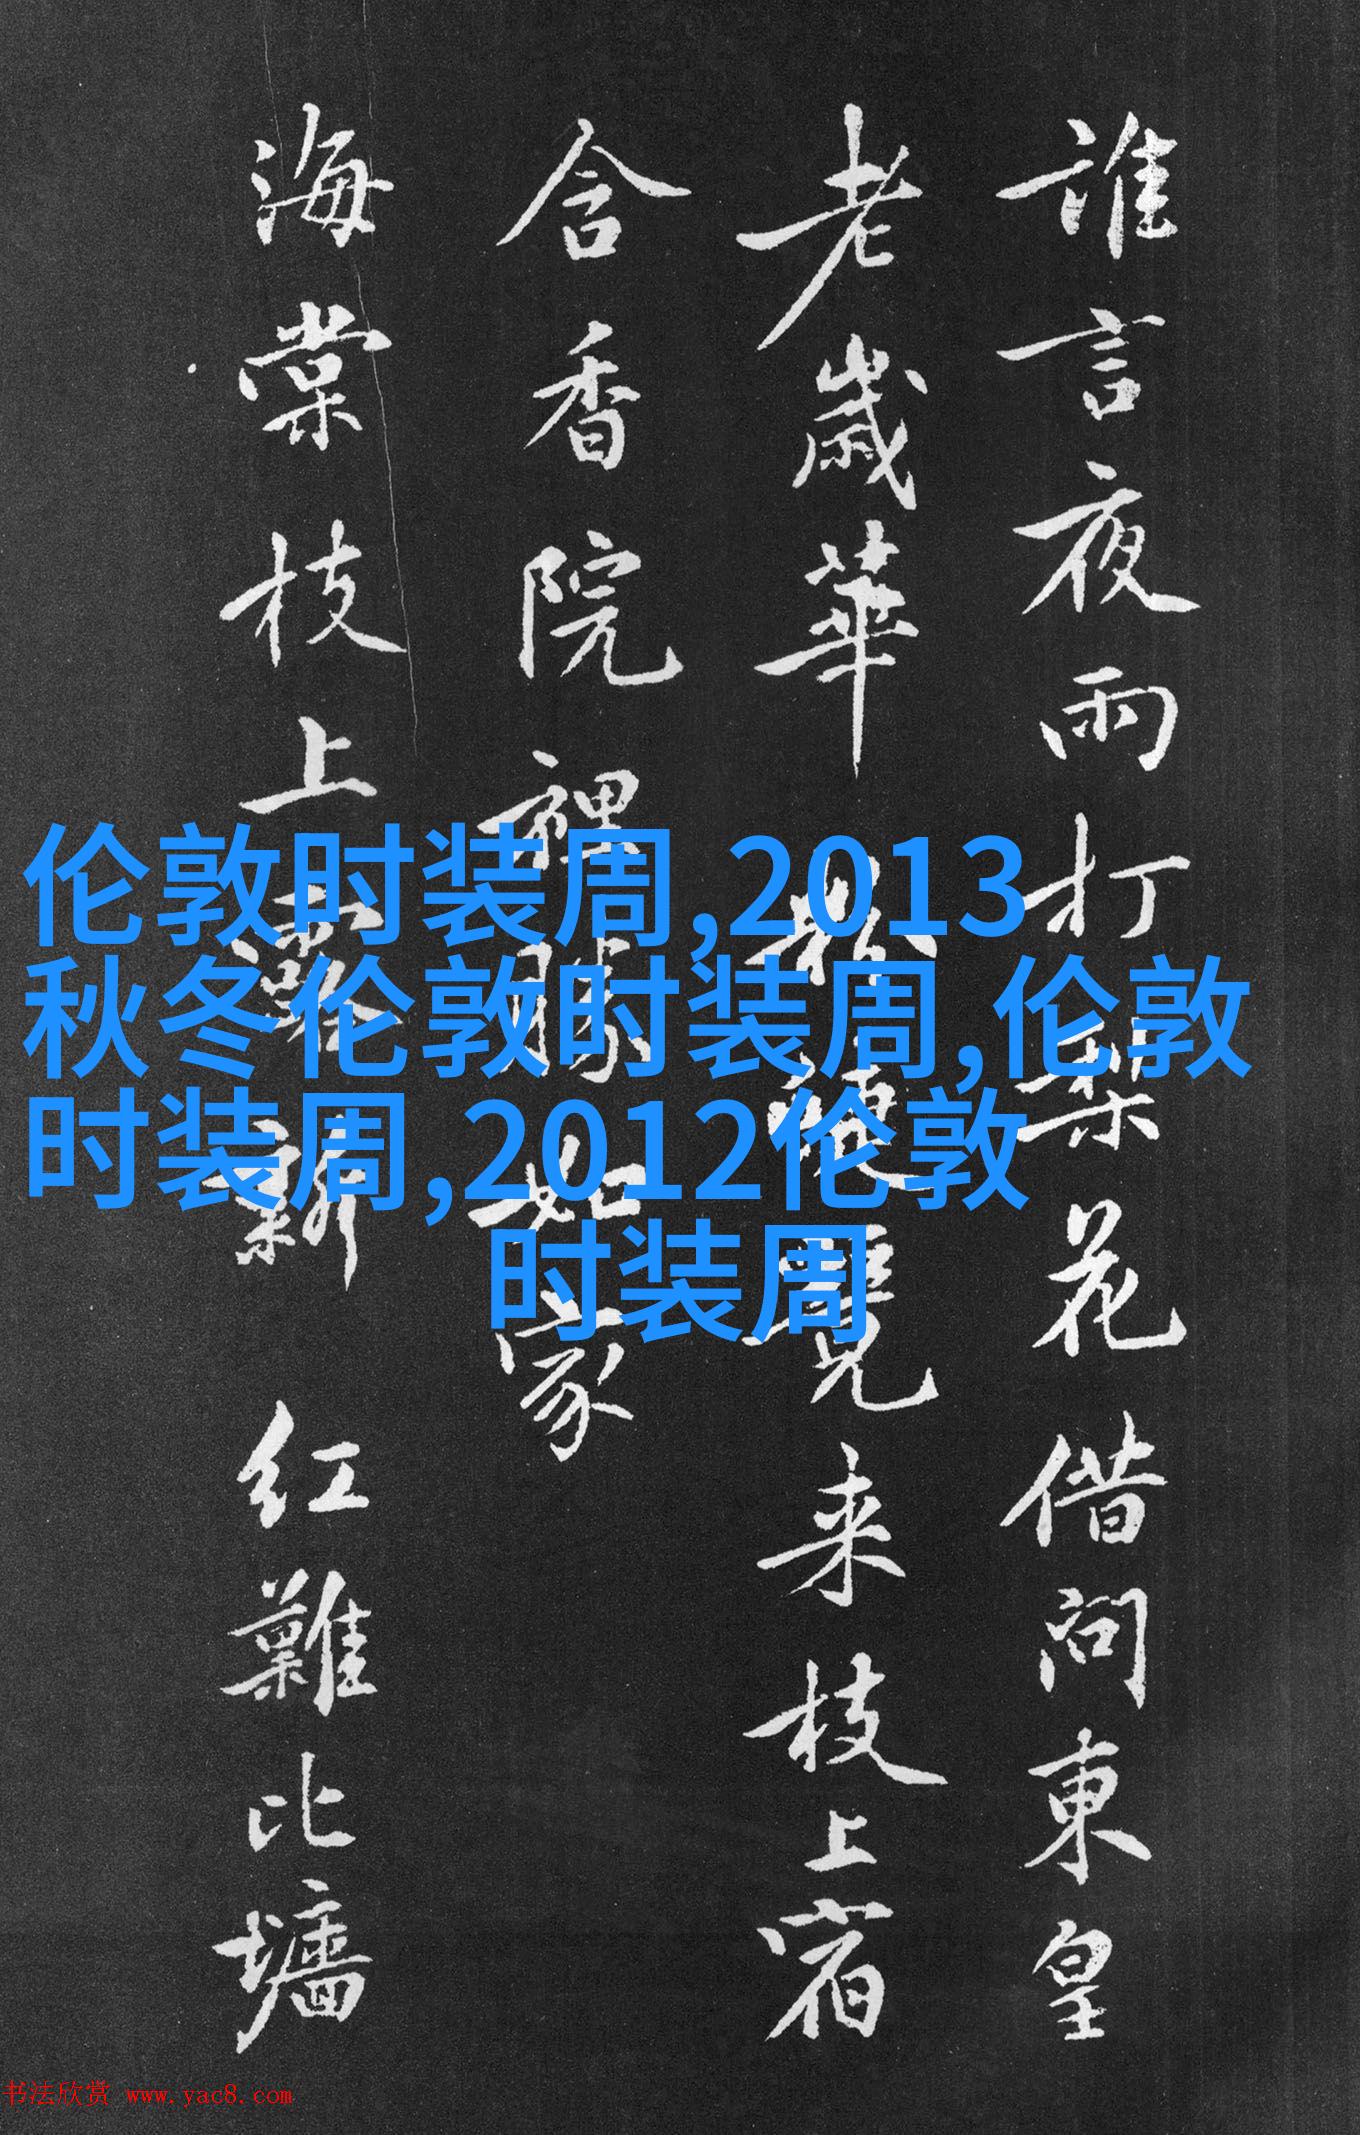 誰言夜雨打梨花借問東皇
老歲華来枝上宿
含香院裡勝如家
海棠枝上紅難比墻
伦敦时装周,2013
秋冬伦敦时装周,伦敦
时装周,2012伦敦
时装周
书法欣赏 www.yac8.com